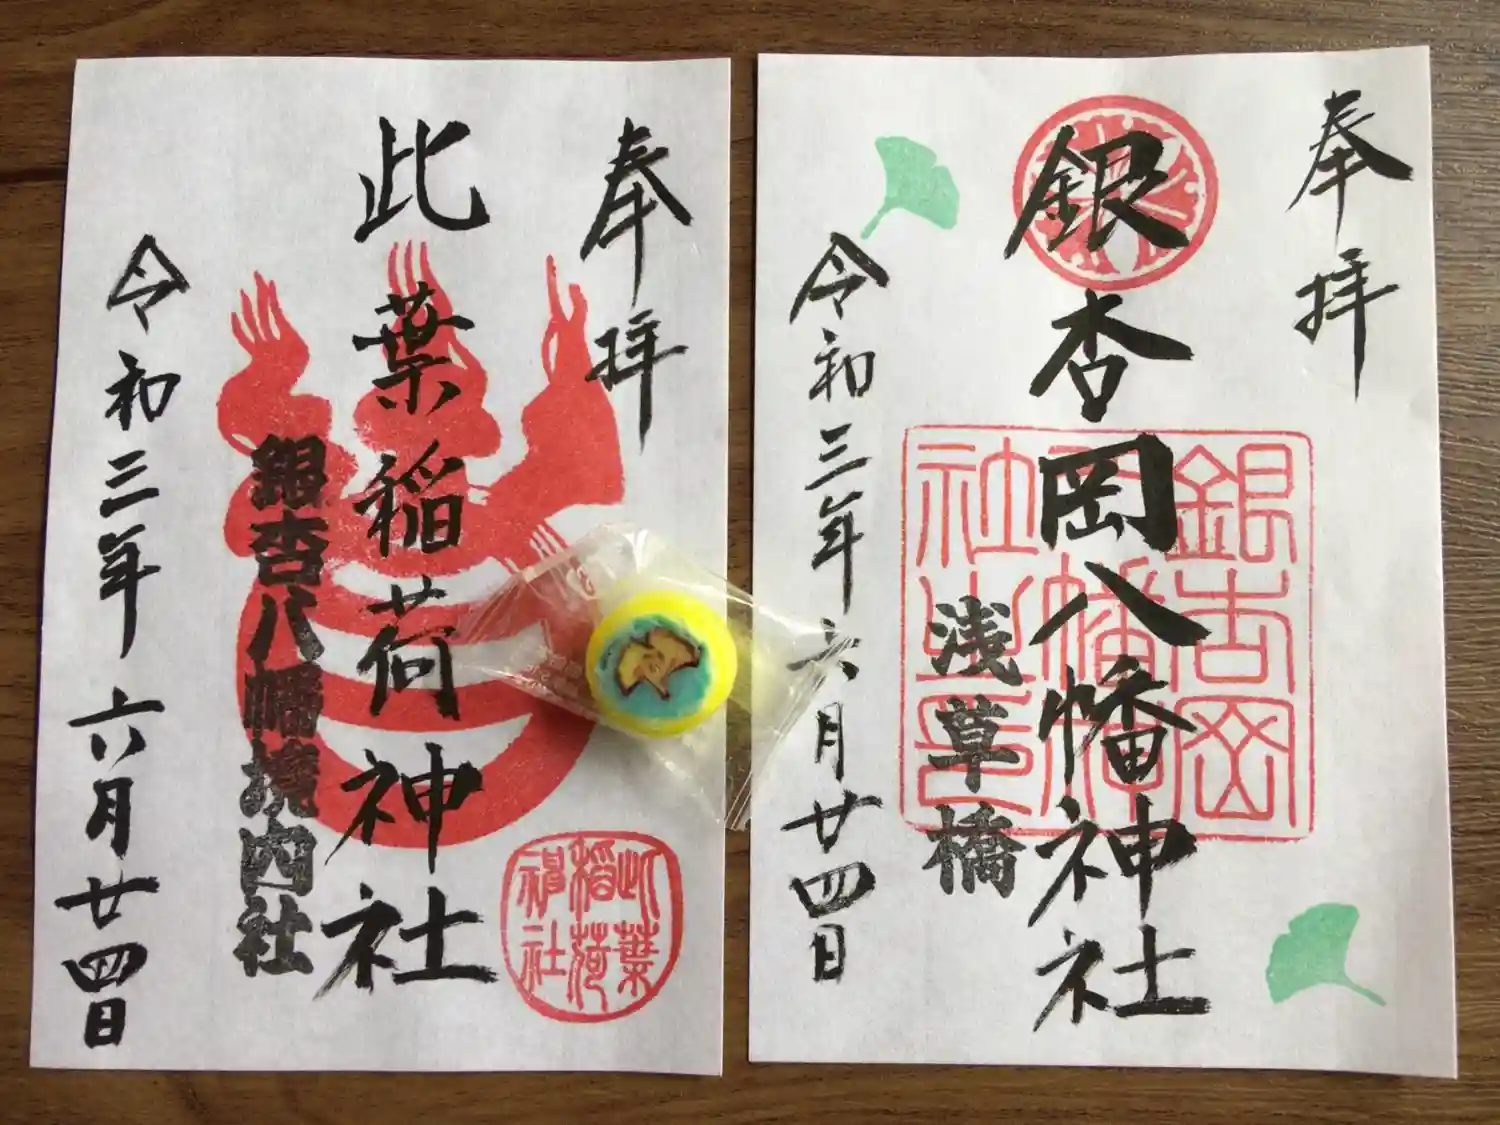 奉拝
銀杏岡八幡神社
銀杏岡
八幡神
社之印
浅草橋
令和三年六月廿四日
奉拝
此葉稲荷神社
此葉
稲荷
神社
銀杏八幡境内社
令和三年六月廿四日